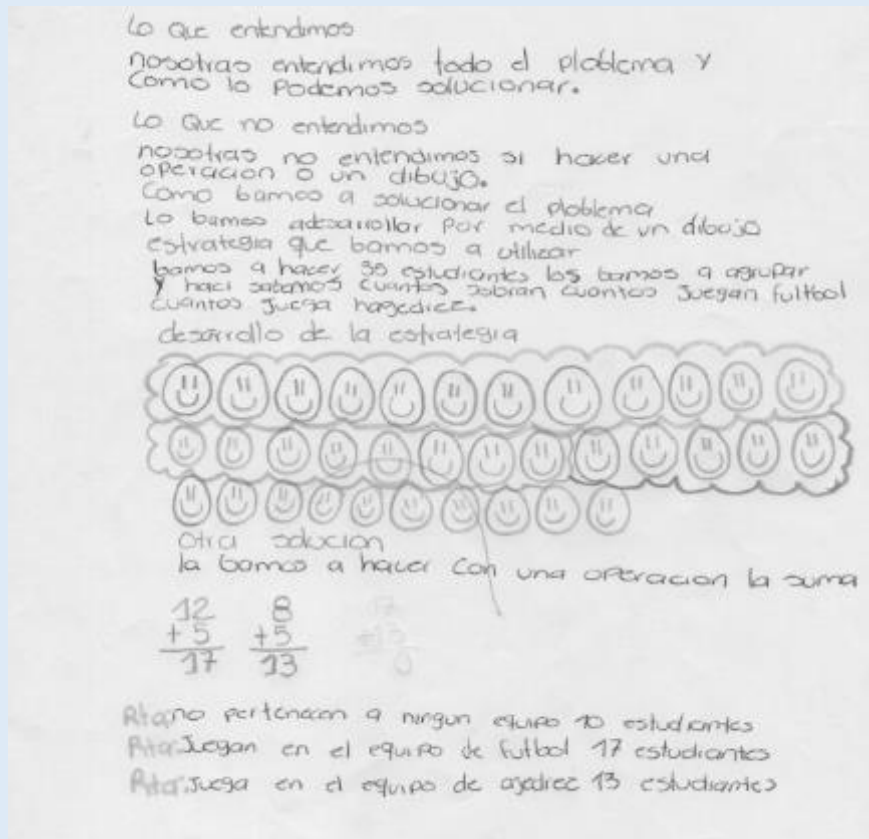 Lo Que entendimos
nosotras entendimos todo el ploblema y
como lo Podemos solucionar.
Lo Que no entendimos
nosotras no entendimos si hacer una
operación o un dibujo.
Como bamos a solucionar el ploblema
Lo bamos adesarrollar por medio de un dibujo
estrategia que bamos a utilizar
bamos a hacer 35 estudiantes los bamos a agrupar
y haci sabemos cuantos sobran cuantos Juegan fultbol
cuantos Juega hagedrez.
desarrollo de la estrategia
otra solucion
la bamos a hacer con una operacion la suma
12 8
+ 5 +5
17 13
Rta: no pertenecen a ningun equipo 10 estudiantes
Rta: Juegan en el equipo de futbol 17 estudiantes
Rta: Juega en el equipo de ajedrez 13 estudiantes